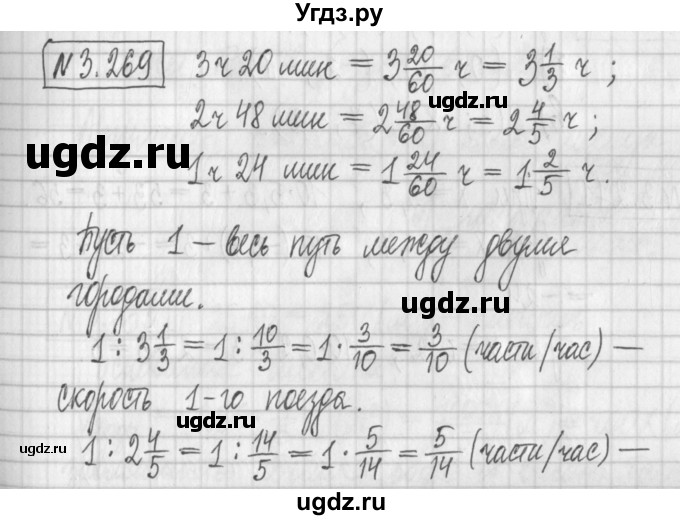 Угдз.ру
№3.269 3ч 20 мин = 3 20/60 ч = 3 1/3 ч ;
ugdz.ru
2ч 48 мин = 2 48/60 ч = 2 4/5 ч ;
ugdz.ru ugdz.ru
1ч 24 мин = 1 24/60 ч = 1 2/5 ч.
Пусть 1 – весь путь между двумя
городами.
ugdz.ru
1 : 3 1/3 = 1 : 10/3 = 1 · 3/10 = 3/10 (части/час) —
ugdz.ru
скорость 1-го поезда.
ugdz.ru
1 : 2 4/5 = 1 : 14/5 = 1 · 5/14 = 5/14 (части/час) —
ugdz.ru
ugdz.ru
ugdz.ru